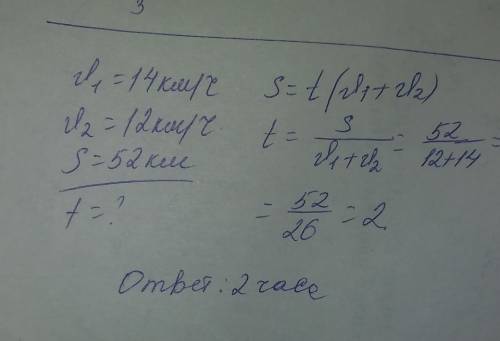 3
v₁ = 14 км/ч
v₂ = 12 км/ч.
S = 52 км
t = ?
S = t (v₁ + v₂)
t = S/(v₁ + v₂) = 52/(12+14) =
= 52/26 = 2
Ответ: 2 часа